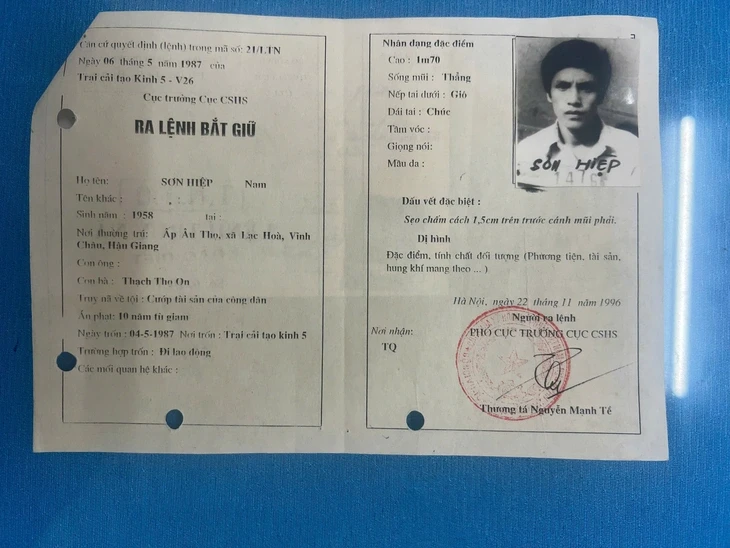 Căn cứ quyết định (lệnh) trong mã số: 21/LTN
Ngày 06 tháng 5 năm 1987 của
Trại cải tạo Kinh 5 - V26
Cục trưởng Cục CSHS
RA LỆNH BẮT GIỮ
Họ tên: SƠN HIỆP Nam
Tên khác :
Sinh năm : 1958 tại :
Nơi thường trú: Ấp Âu Thọ, xã Lạc Hoà, Vĩnh
Châu, Hậu Giang
Con ông :
Con bà : Thạch Thọ On
Truy nã về tội : Cướp tài sản của công dân
Án phạt: 10 năm tù giam
Ngày trốn : 04-5-1987 Nơi trốn : Trại cải tạo kinh 5
Trường hợp trốn : Đi lao động
Các mối quan hệ khác :
Nhân dạng đặc điểm
Cao : 1m70
Sống mũi : Thẳng
Nếp tai dưới : Giô
Dái tai : Chúc
Tầm vóc :
Giọng nói:
Mầu da :
SƠN HIỆP
Dấu vết đặc biệt :
Sẹo chấm cách 1,5cm trên trước cánh mũi phải.
Dị hình
Đặc điểm, tính chất đối tượng (Phương tiện, tài sản,
hung khí mang theo ... )
Hà Nội, ngày 22 tháng 11 năm 1996
Người ra lệnh
Nơi nhận: PHÓ CỤC TRƯỞNG CỤC CSHS
TQ
Thượng tá Nguyễn Mạnh Tề